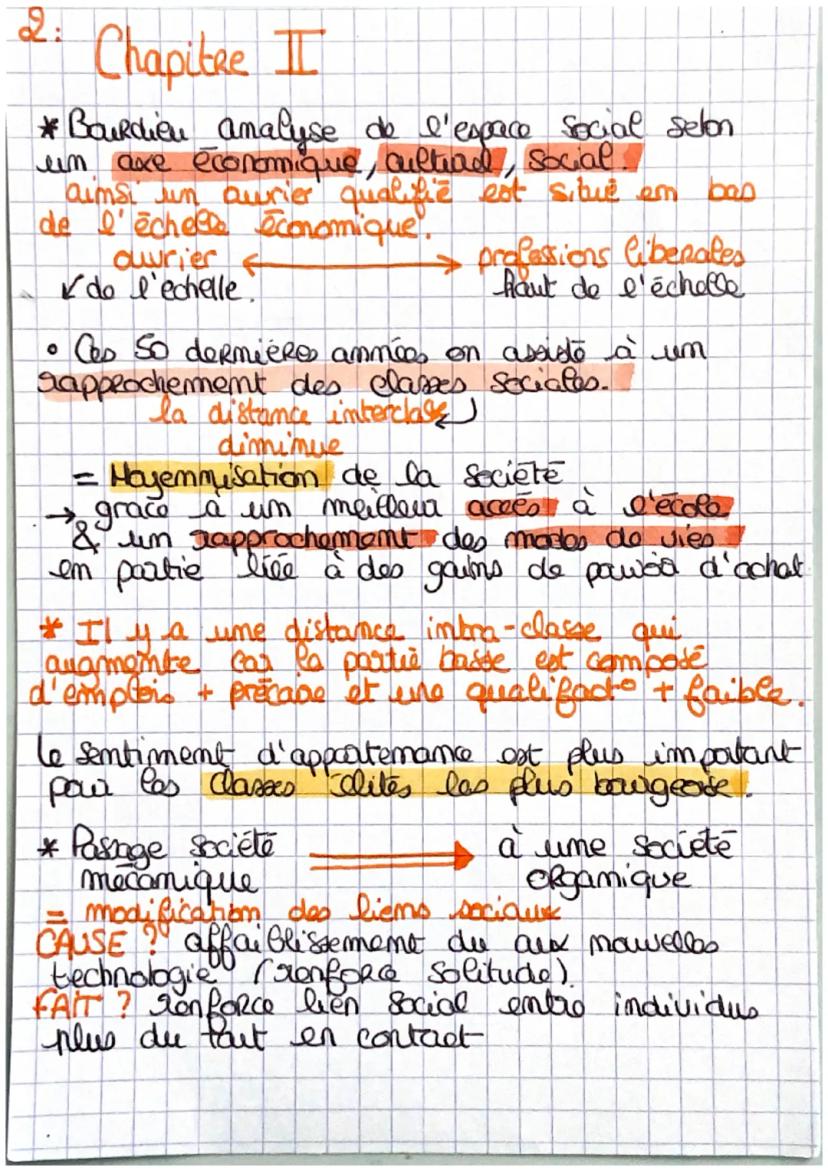 2:
Chapitre II
* Bourdieu analyse de l'espace social selon
un axe économique, culturel, social.
ainsi un ouvrier qualifié est situé en bas
de l'échelle économique.
ouvrier ⟷ professions liberales
↙ de l'echelle. haut de l'échelle
• Ces 50 dernières années on assiste à un
rapprochement des classes sociales.
la distance interclasse
diminue
= Moyennisation de la société
→ grace à un meilleur accès à l'école
& un rapprochement des modes de vies
en partie liée à des gains de pouvoir d'achat
* Il y a une distance intra-classe qui
augmente car la partie basse est composé
d'emplois + précaire et une qualificat° + faible.
Le sentinment d'appartenance est plus important
pour les classes élites les plus bourgeoise.
* Passage société ⟹ à une société
mécanique organique
= modification des liens sociaux
CAUSE ? affaiblissement du aux nouvelles
technologie (renforce solitude).
FAIT ? renforce lien social entre individus
plus du tout en contact